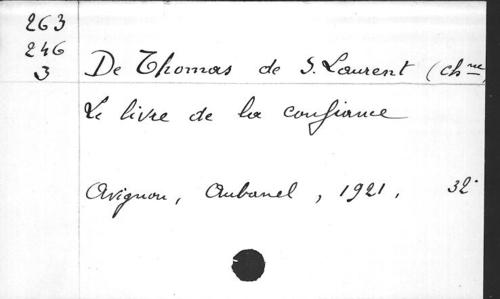 263
246
3 De Thomas de S. Laurent (Chne)
Le livre de la confiance
Avignon, Aubanel, 1921. 32°